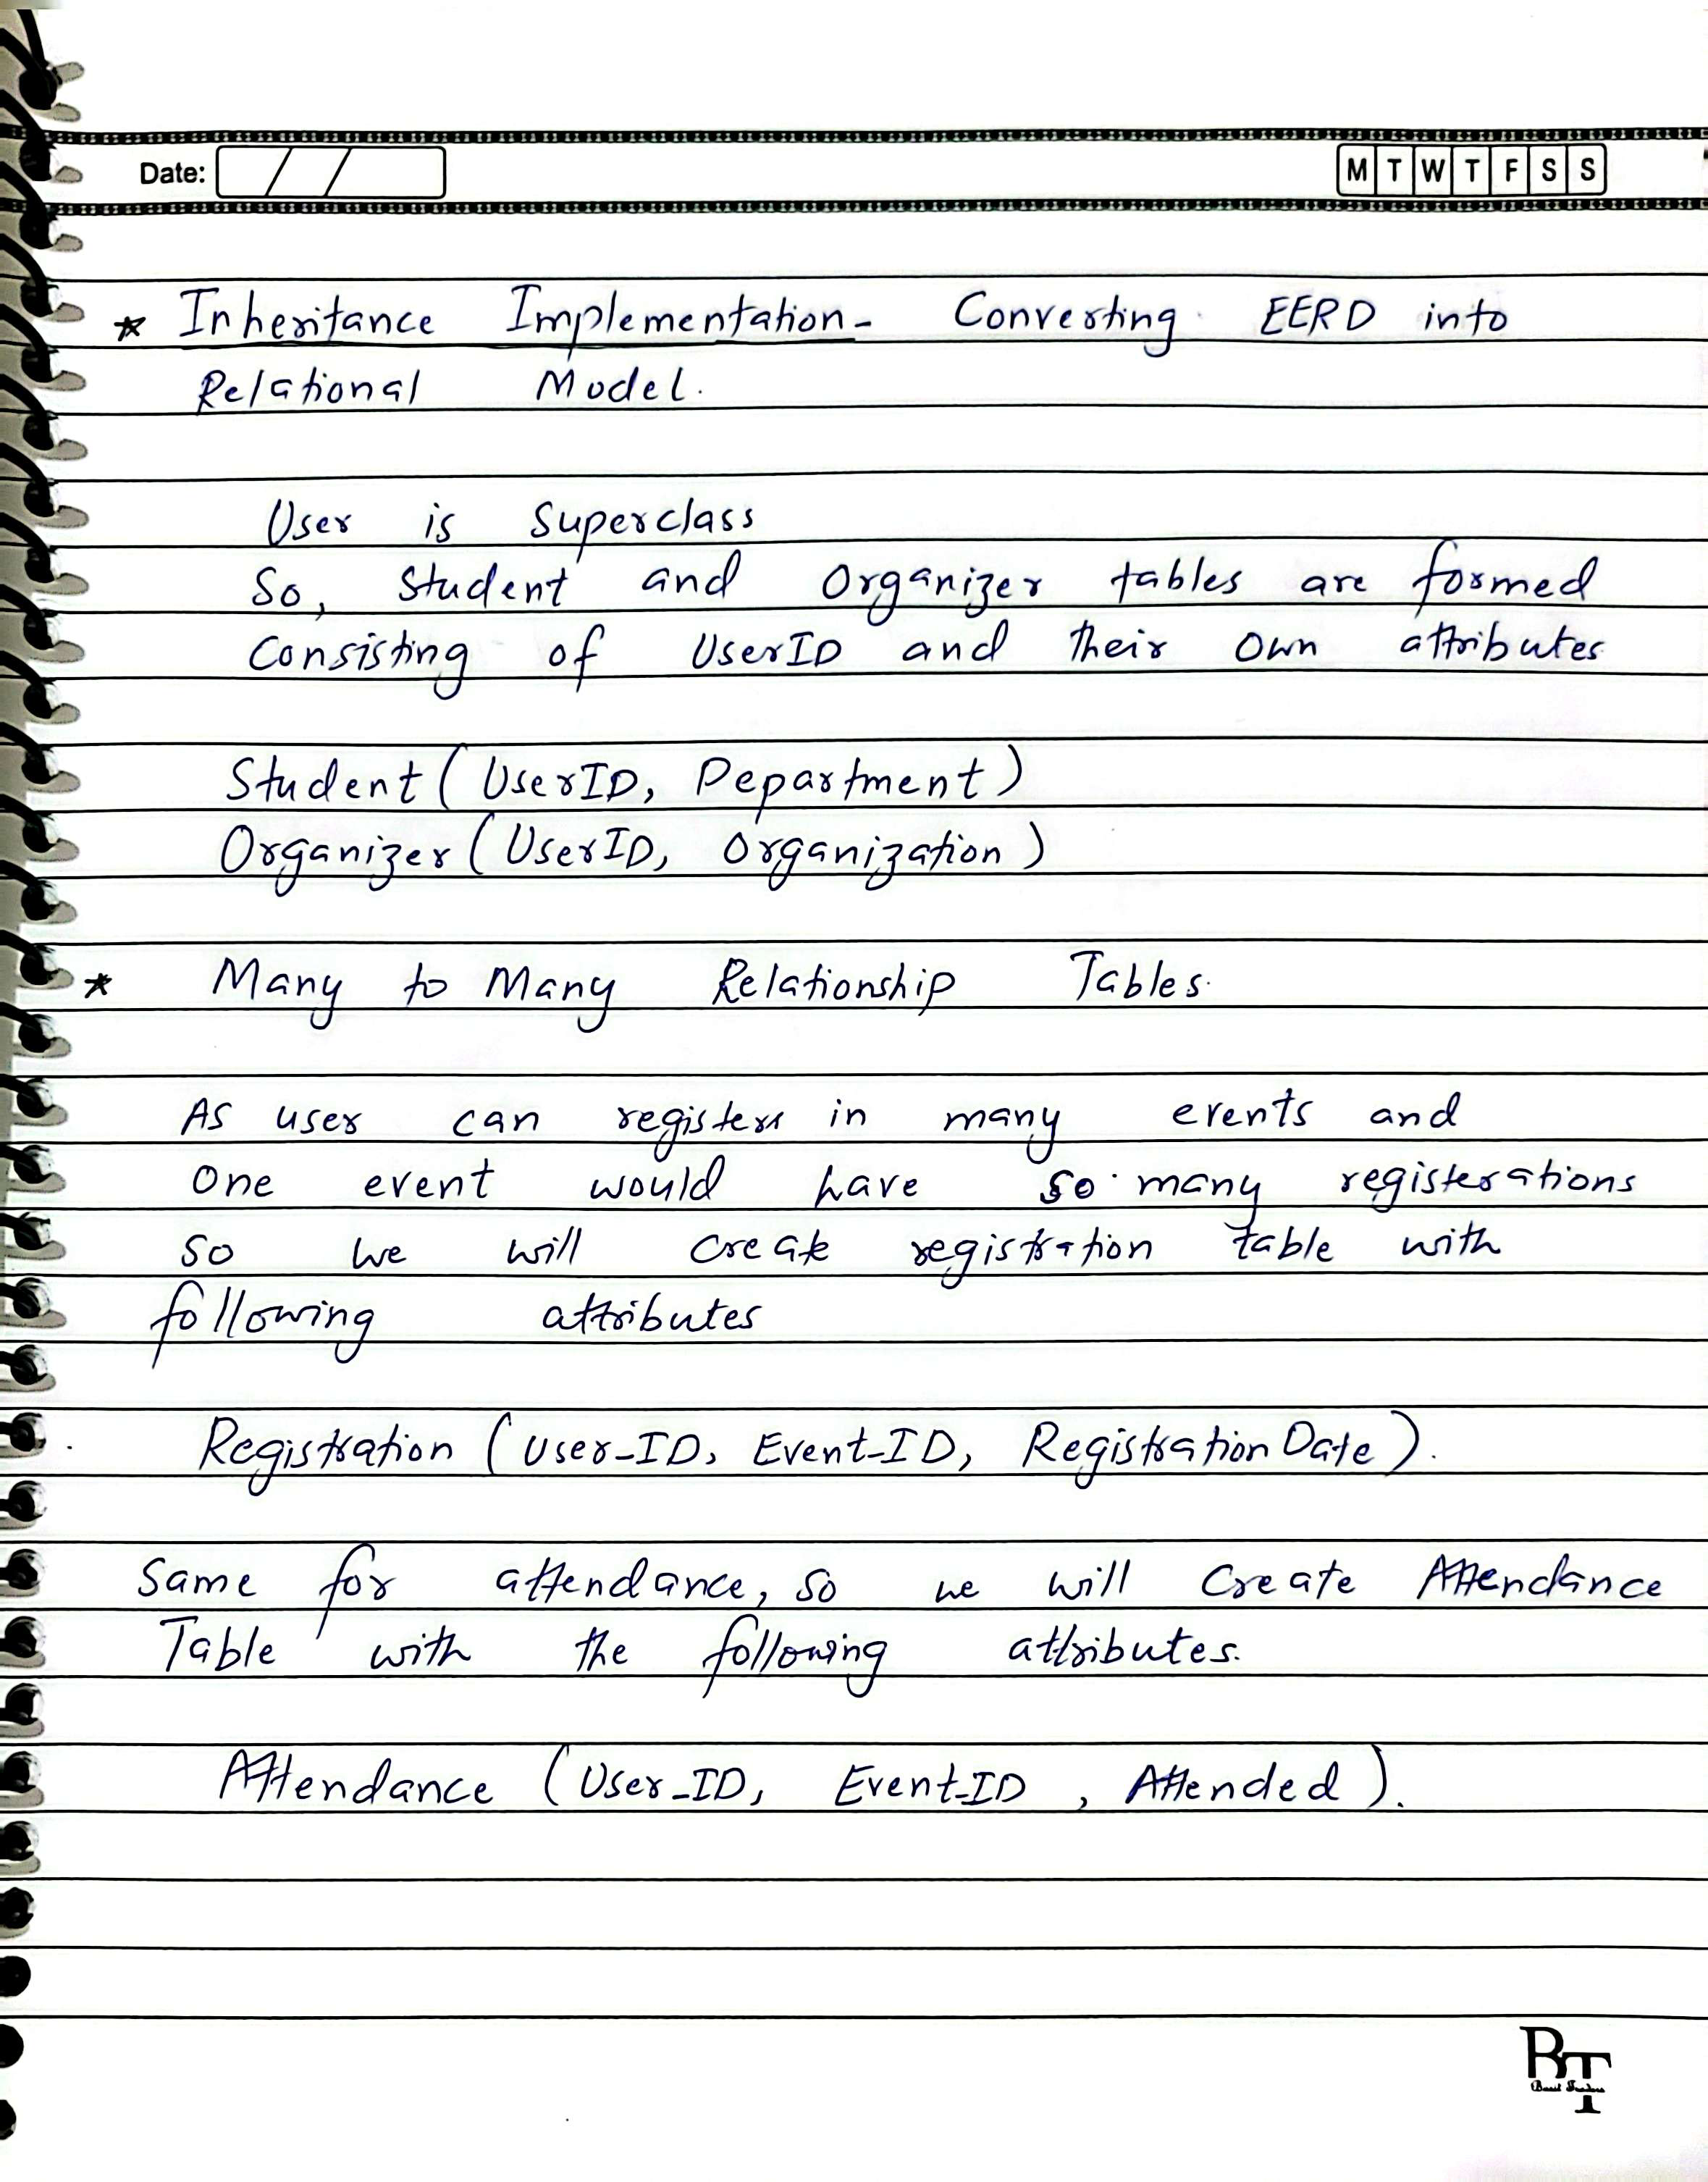 Date: / /
M T W T F S S
* Inheritance Implementation - Converting EERD into
Relational Model.
User is Superclass
So, Student and Organizer tables are formed
Consisting of UserID and their own attributes
Student ( UserID, Department )
Organizer ( UserID, Organization )
* Many to Many Relationship Tables.
As user can register in many events and
one event would have so many registerations
so we will create registration table with
following attributes
Registration ( User-ID, Event-ID, Registration Date ).
Same for attendance, so we will create Attendance
Table with the following attributes.
Attendance ( User-ID, Event-ID , Attended ).
BT